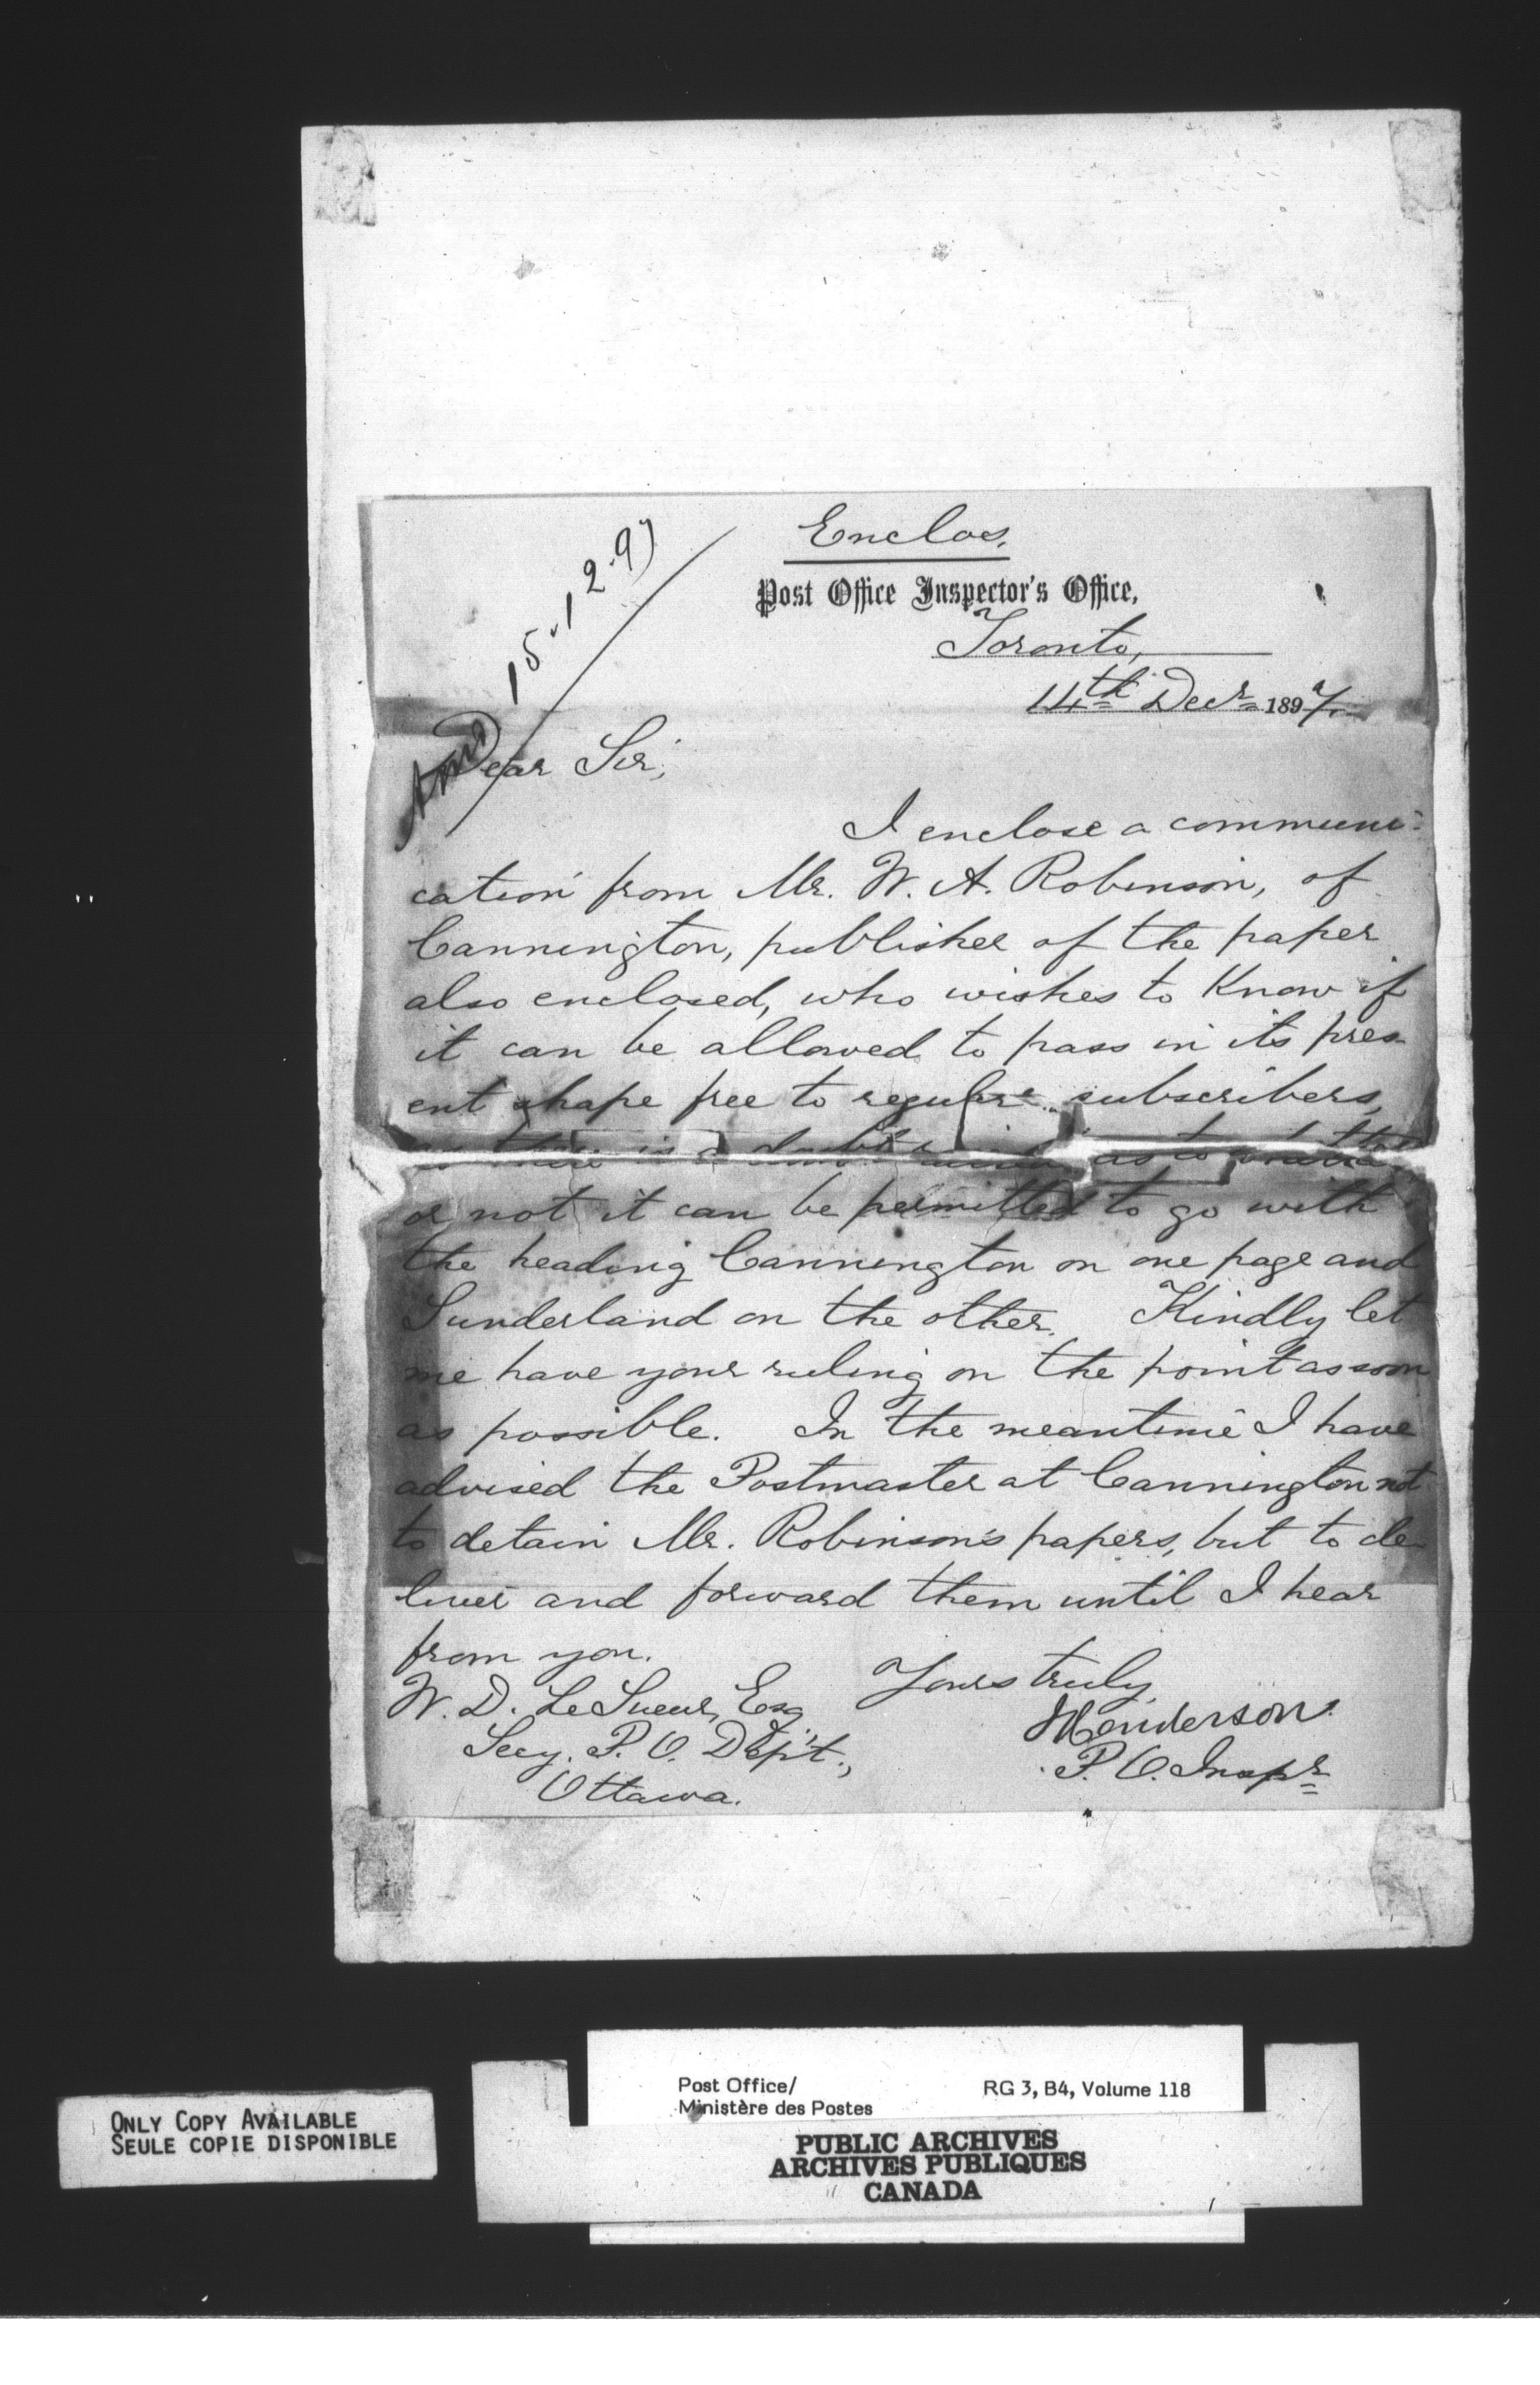 Enclos.
15-12-97
Post Office Inspector's Office,
Toronto,
14th Decr 1897.
Ansd
Dear Sir,
I enclose a communi-
cation from Mr. W. A. Robinson, of
Cannington, publisher of the paper
also enclosed, who wishes to know if
it can be allowed to pass in its pres-
ent shape free to regular subscribers,
as there is a doubt as to whether
or not it can be permitted to go with
the heading Cannington on one page and
Sunderland on the other. Kindly let
me have your ruling on the point as soon
as possible. In the meantime I have
advised the Postmaster at Cannington not
to detain Mr. Robinson's papers, but to de-
liver and forward them until I hear
from you.
Yours truly,
W. D. LeSueur, Esq.,
Henderson
Secy. P. O. Dept.,
P. O. Inspr
Ottawa.
Post Office/
Ministère des Postes
RG 3, B4, Volume 118
ONLY COPY AVAILABLE
SEULE COPIE DISPONIBLE
PUBLIC ARCHIVES
ARCHIVES PUBLIQUES
CANADA